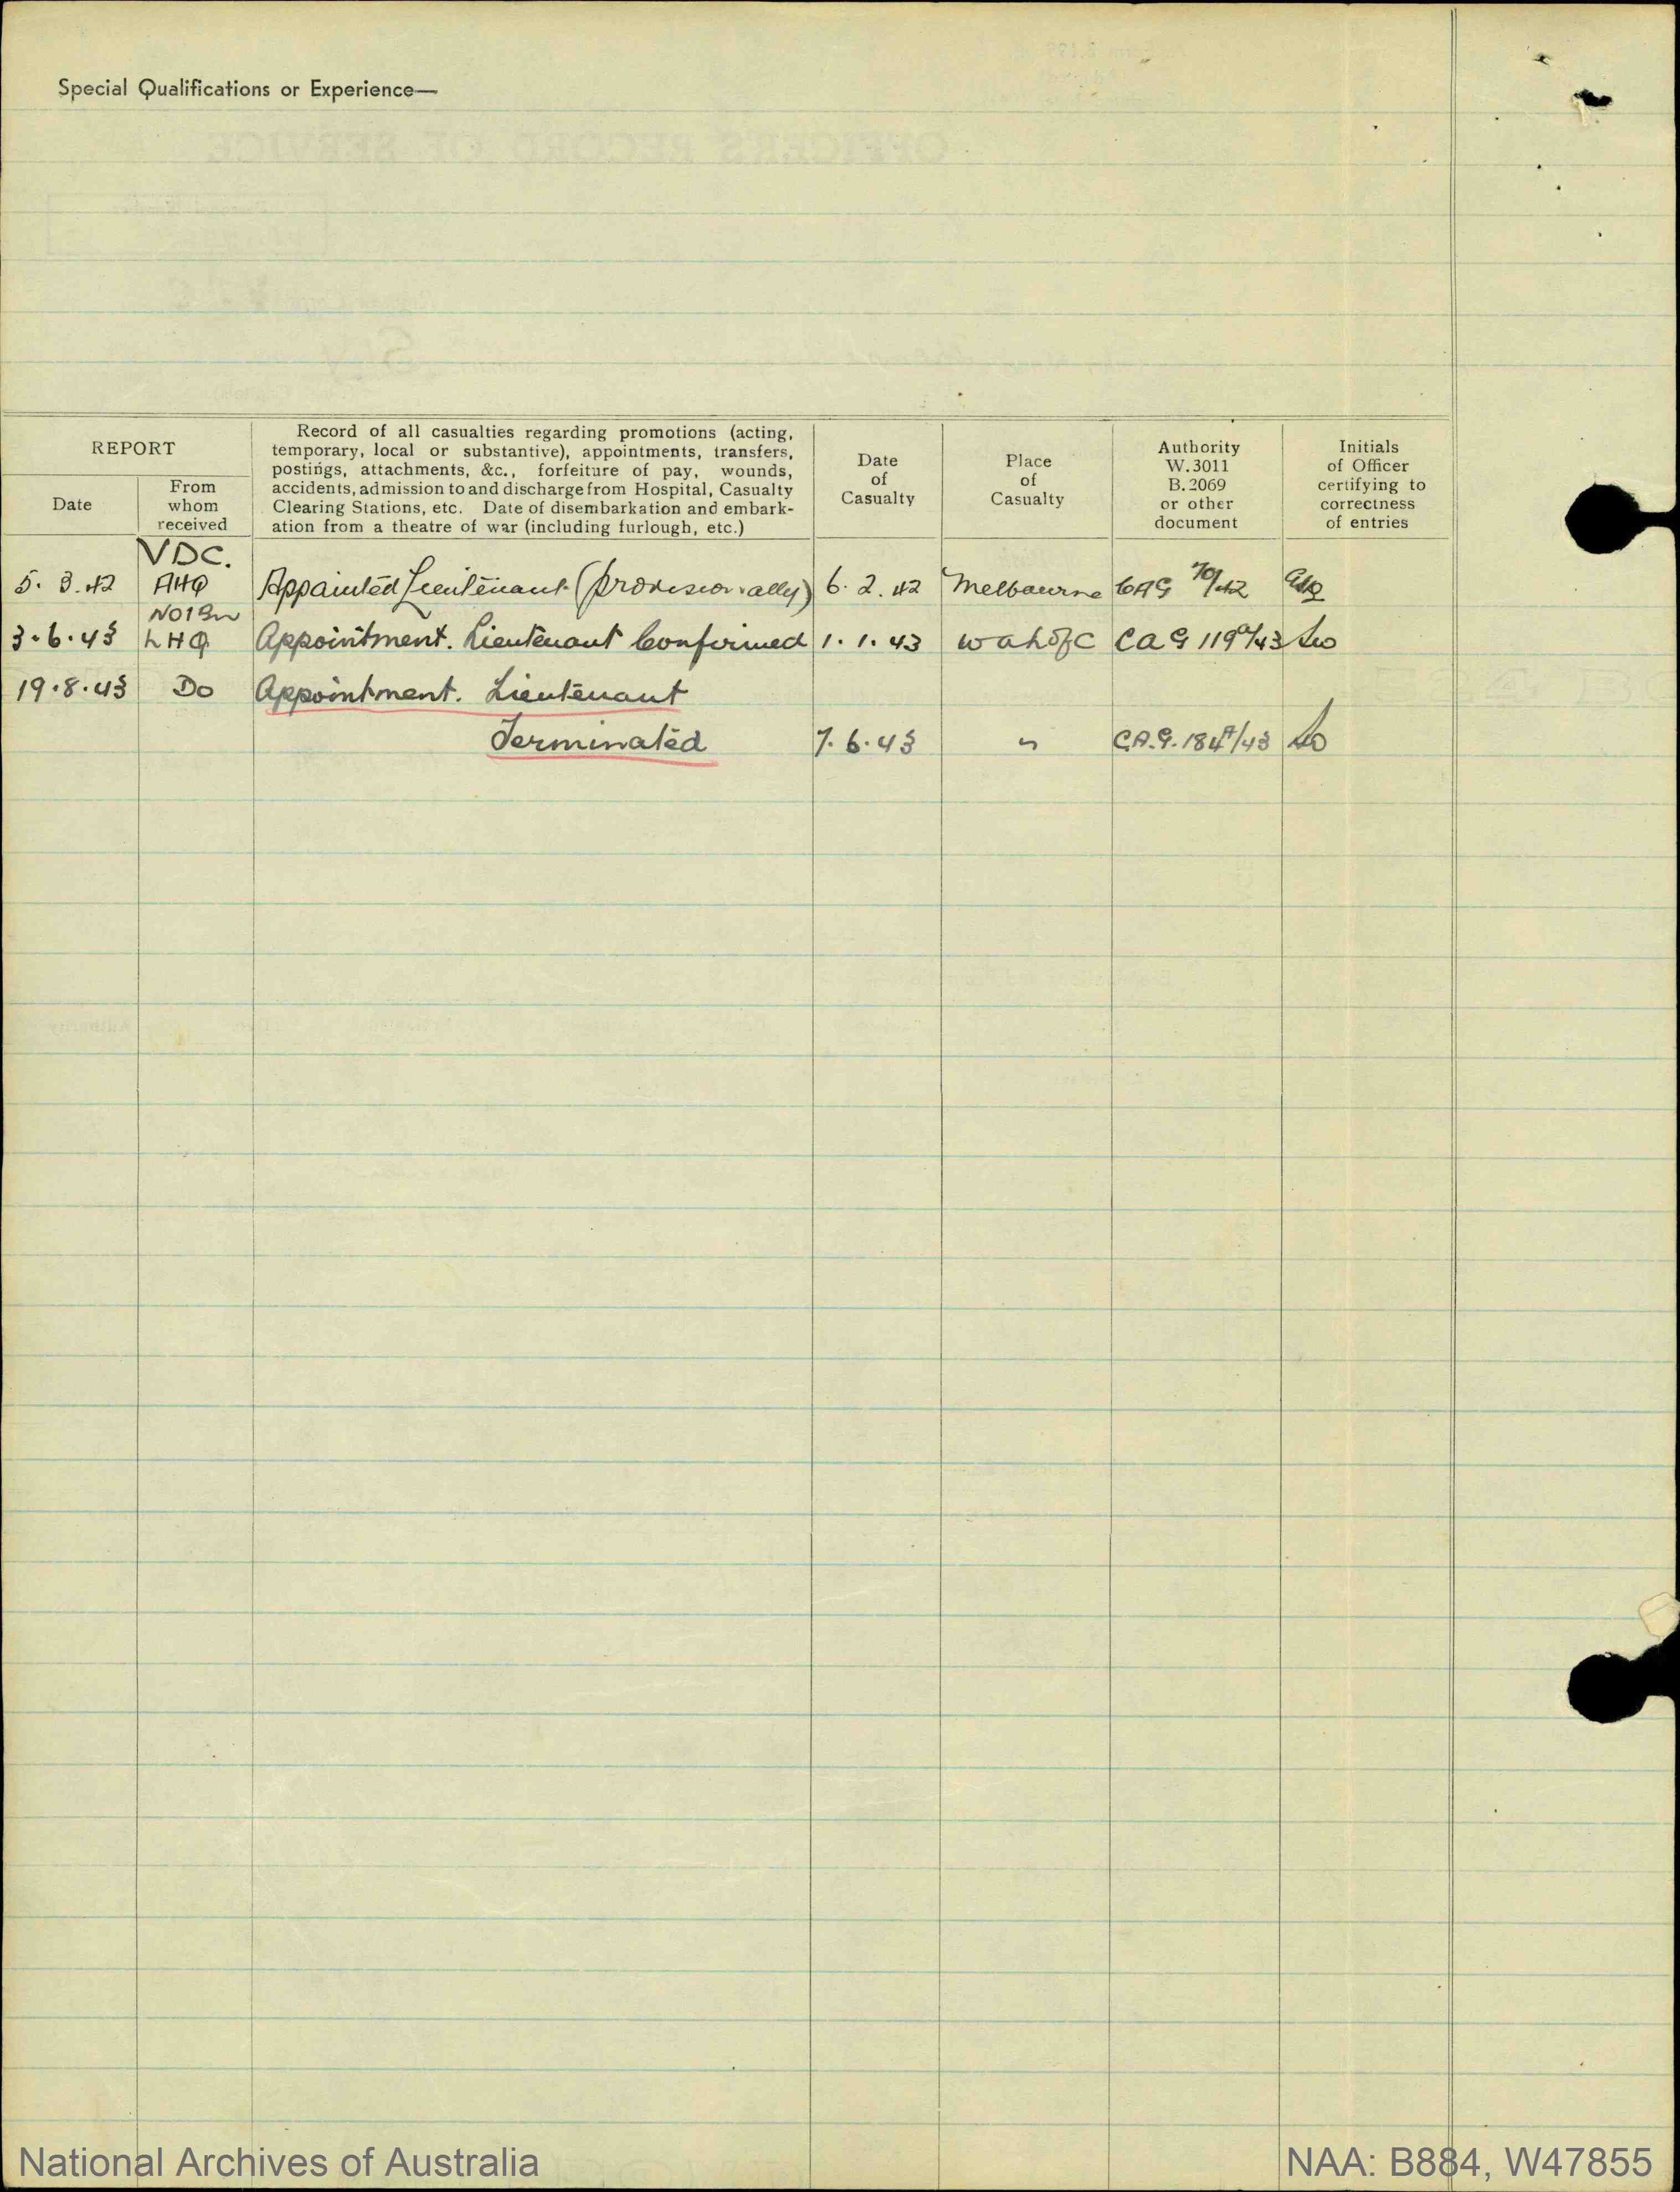 Special Qualifications or Experience—
REPORT
Date
From
whom
received
Record of all casualties regarding promotions (acting,
temporary, local or substantive), appointments, transfers,
postings, attachments, &c., forfeiture of pay, wounds,
accidents, admission to and discharge from Hospital, Casualty
Clearing Stations, etc. Date of disembarkation and embark-
ation from a theatre of war (including furlough, etc.)
Date
of
Casualty
Place
of
Casualty
Authority
W.3011
B.2069
or other
document
Initials
of Officer
certifying to
correctness
of entries
VDC.
5. 3. 42 AHQ Appointed Lieutenant (provisionally) 6. 2. 42 Melbourne CAG 70/42
NO1 Bn
3.6.43 LHQ Appointment. Lieutenant Confirmed 1. 1. 43 W A L of C CAG 119/43
19.8.43 Do Appointment. Lieutenant
Terminated 7.6.43 " C.A.G. 184/43
National Archives of Australia
NAA: B884, W47855